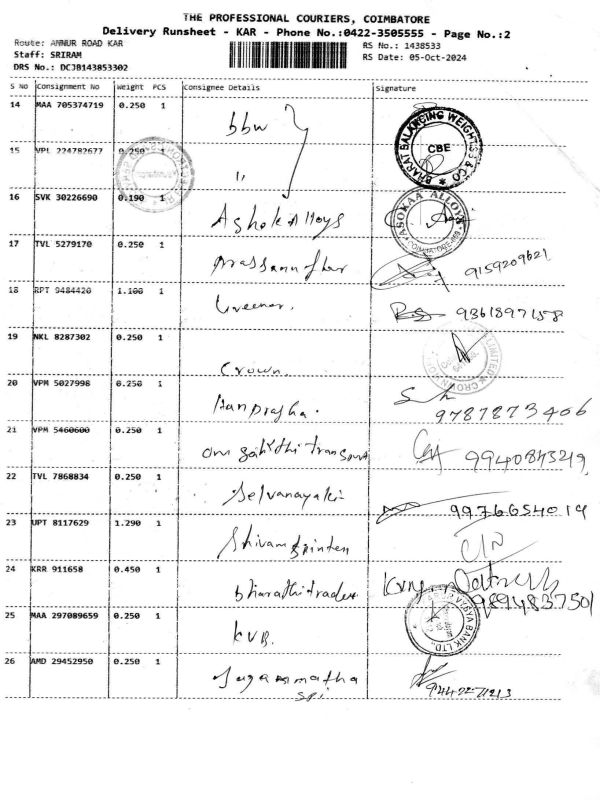 THE PROFESSIONAL COURIERS, COIMBATORE
Delivery Runsheet - KAR - Phone No.:0422-3505555 - Page No.:2
Route: ANNUR ROAD KAR
RS No.: 1438533
Staff: SRIRAM
RS Date: 05-Oct-2024
DRS No.: DCJB143853302
S No Consignment No Weight PCS Consignee Details Signature
14 MAA 705374719 0.250 1 bbw
BHARAT BALANCING WEIGHTSS & CO CBE
15 VPL 224782677 0.250 1 "
16 SVK 30226690 0.190 1 Ashok Alloys
ASOKAA ALLOYS
17 TVL 5279170 0.250 1 9159209621
18 RPT 9484420 1.100 1 9361897158
19 NKL 8287302 0.250 1 Crown
20 VPM 5027998 0.250 1 9787873406
21 VPM 5460600 0.250 1 om sakthi transport 9940843219
22 TVL 7868834 0.250 1 Selvanayaki 9976654019
23 UPT 8117629 1.290 1
24 KRR 911658 0.450 1 bharathi traders
9894837501
25 MAA 297089659 0.250 1 KVB
VYSYA BANK LTD.
26 AMD 29452950 0.250 1